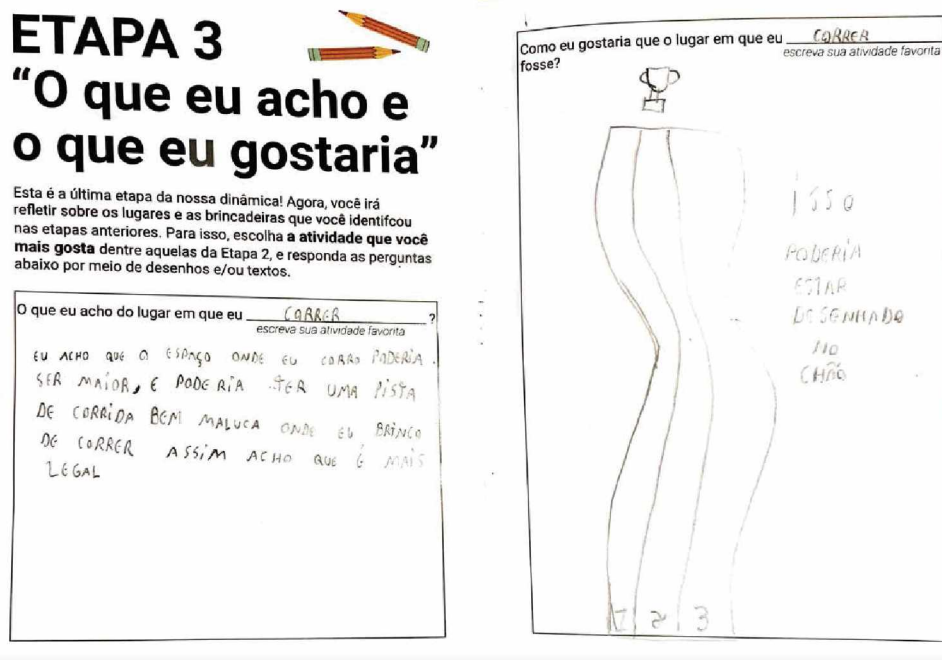 ETAPA 3
“O que eu acho e
o que eu gostaria”
Esta é a última etapa da nossa dinâmica! Agora, você irá
refletir sobre os lugares e as brincadeiras que você identifcou
nas etapas anteriores. Para isso, escolha a atividade que você
mais gosta dentre aquelas da Etapa 2, e responda as perguntas
abaixo por meio de desenhos e/ou textos.
O que eu acho do lugar em que eu CORRER ?
escreva sua atividade favorita
EU ACHO QUE O ESPAÇO ONDE EU CORRO PODERIA
SER MAIOR, E PODERIA TER UMA PISTA
DE CORRIDA BEM MALUCA ONDE EU BRINCO
DE CORRER ASSIM ACHO QUE É MAIS
LEGAL
Como eu gostaria que o lugar em que eu CORRER
escreva sua atividade favorita
fosse?
ISSO
PODERIA
ESTAR
DESENHADO
NO
CHÃO
1 2 3